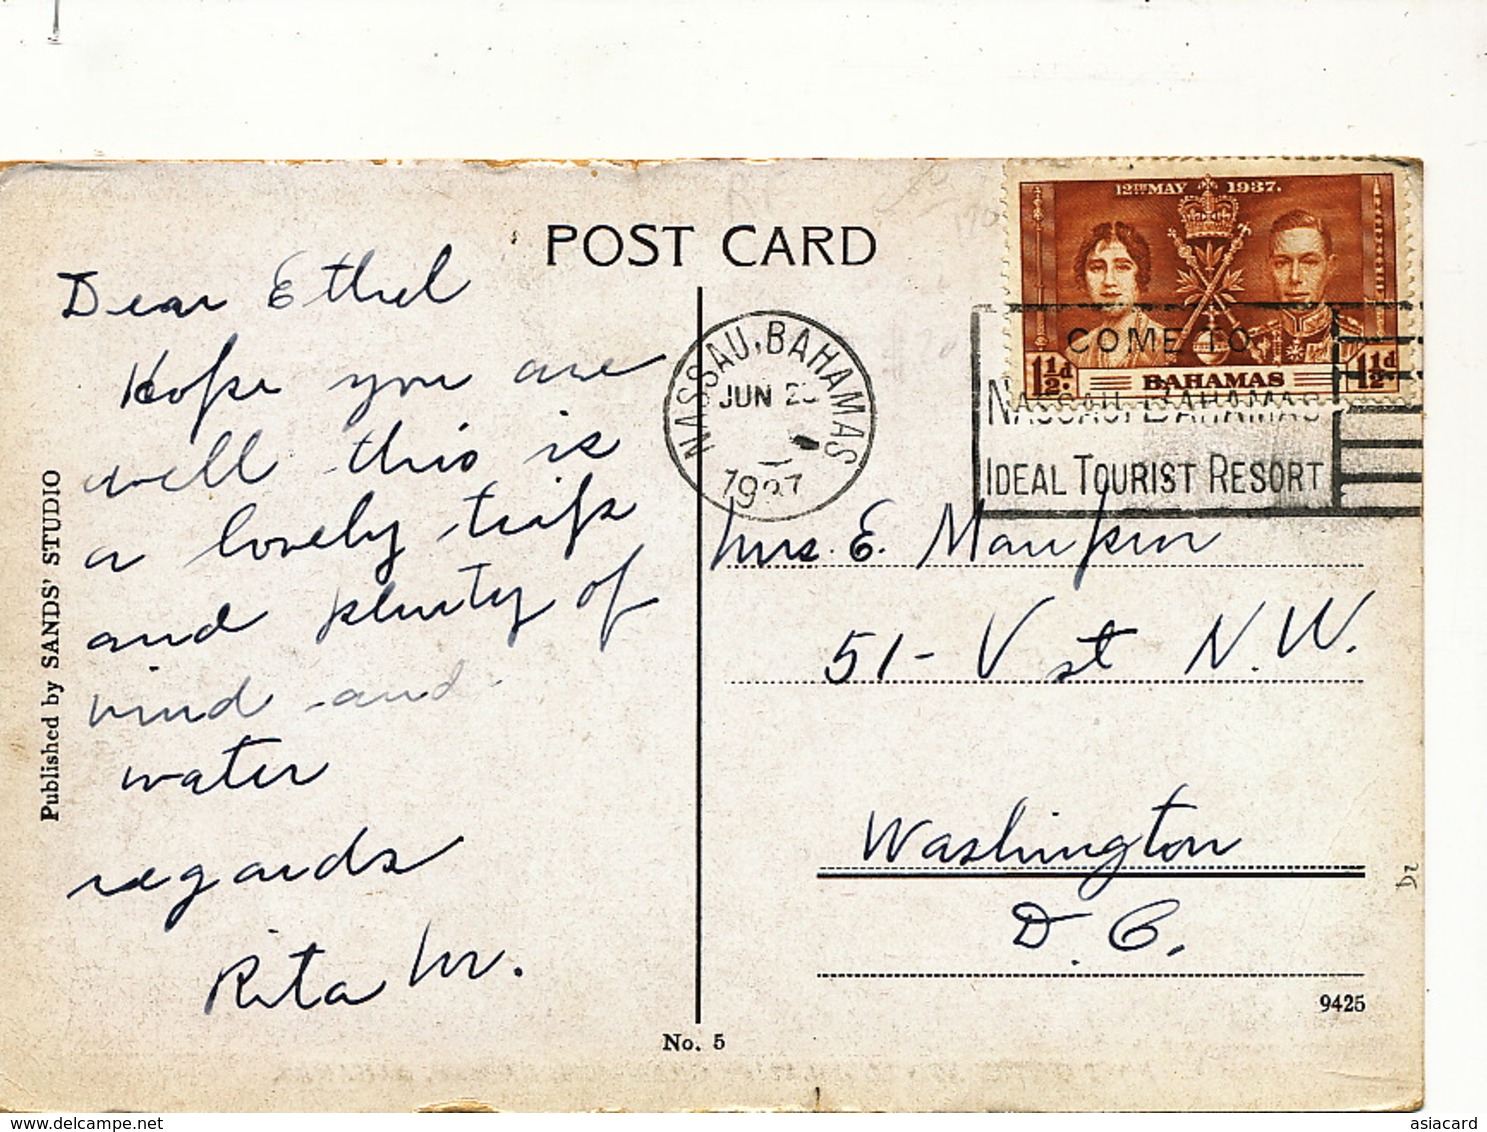 POST CARD
12TH MAY 1937.
1½d. BAHAMAS 1½d.
NASSAU, BAHAMAS
JUN
1937
COME TO
NASSAU, BAHAMAS
IDEAL TOURIST RESORT
Dear Ethel
Hope you are
well this is
a lovely trip
and plenty of
wind and
water
regards
Rita M.
Mrs. E. Maupin
51 - V st N.W.
Washington
D. C.
Published by SANDS' STUDIO
No. 5
9425
asiacard